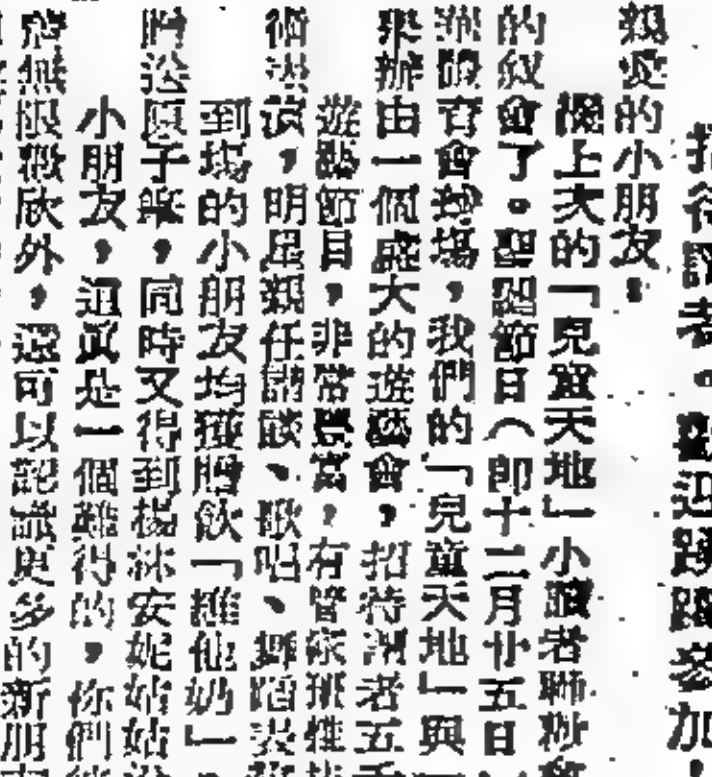 招待讀者。歡迎踴躍參加
親愛的小朋友:
機上大的「兒童天地」小讀者聯
的敍會了。聖誕節日(即十二月廿五日
育會球場,我們的「兒童天地」與
舉辦由一個盛大的遊藝會,招待讀者五千
遊藝節目,非常豐富,有管
術表演,明星親任、歌唱、舞蹈表
到場的小朋友均獲贈飲「維他奶」
贈送原子,同時又得到楊安妮姑姑
小朋友,這眞是一個難得的,你們
無限歡欣外,還可以認識更多的新朋